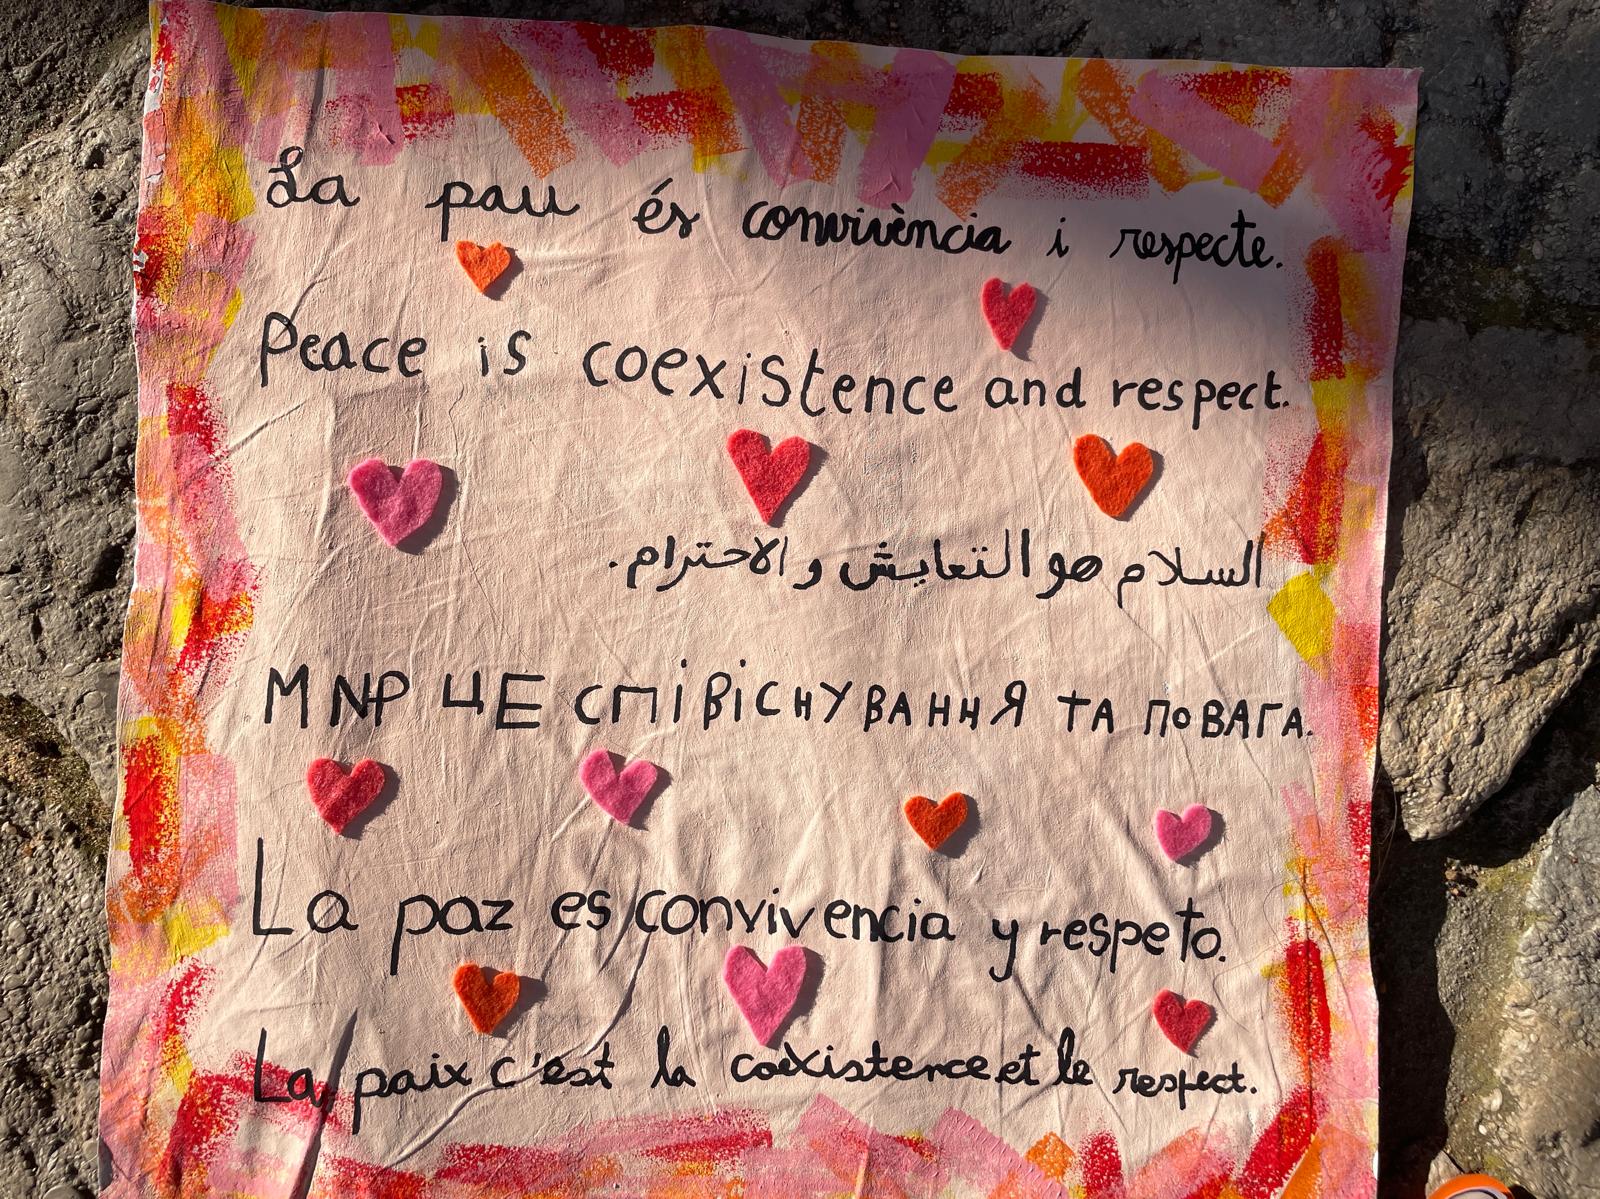 La pau és convivència i respecte.
Peace is coexistence and respect.
السلام هو التعايش والاحترام.
МИР ЦЕ СПІВІСНУВАННЯ ТА ПОВАГА.
La paz es convivencia y respeto.
La paix c'est la coexistence et le respect.